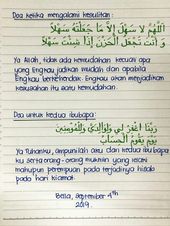 Doa ketika mengalami kesulitan :
اَللّٰهُمَّ لَا سَهْلَ إِلَّا مَا جَعَلْتَهُ سَهْلًا
وَ أَنْتَ تَجْعَلُ الْحَزْنَ إِذَا شِئْتَ سَهْلًا
Ya Allah, tidak ada kemudahan kecuali apa
yang Engkau jadikan mudah dan apabila
Engkau berkehendak, Engkau akan menjadikan
kesusahan itu satu kemudahan.
Doa untuk kedua ibubapa:
رَبَّنَا اغْفِرْ لِي وَلِوَالِدَيَّ وَلِلْمُؤْمِنِينَ
يَوْمَ يَقُومُ الْحِسَابُ
Ya Tuhanku, ampunilah aku dan kedua ibu bapa
ku serta orang-orang mukmin yang lelaki
mahupun perempuan pada terjadinya hisab
pada hari kiamat.
Bella, September 4th
2019.